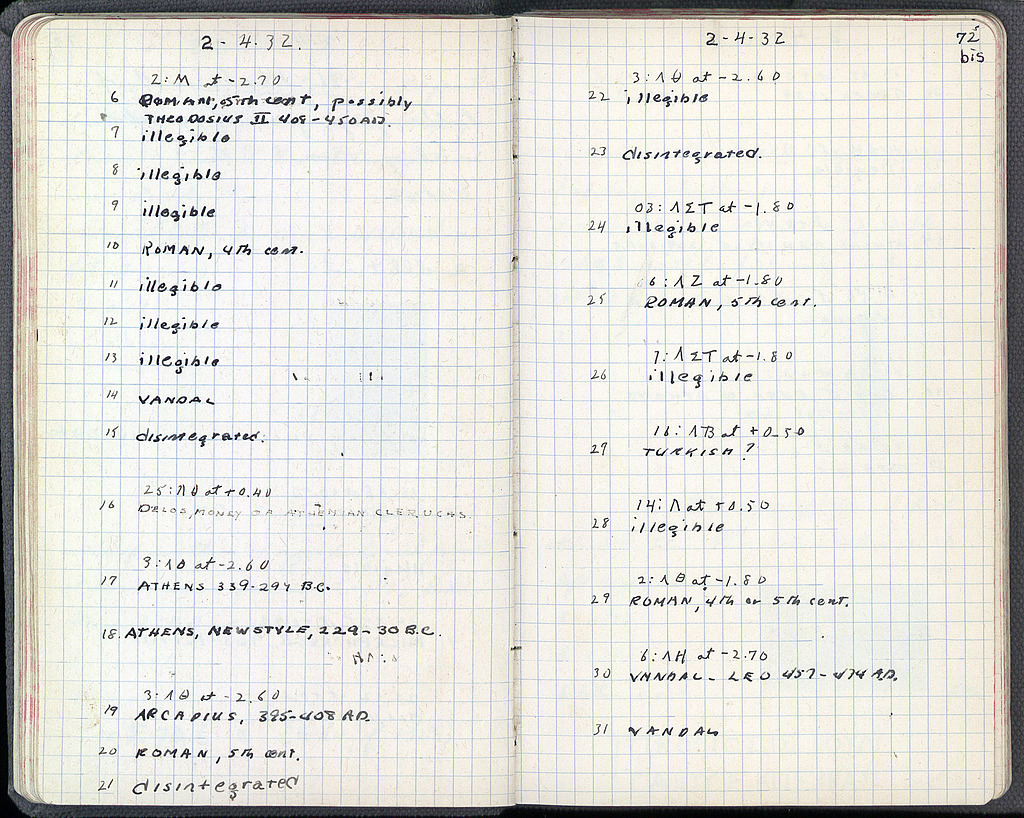 2 - 4.32.
2: M at -2.70
6 ROMAN, 5th cent, possibly
THEODOSIUS II 408-450 AD.
7 illegible
8 illegible
9 illegible
10 ROMAN, 4th cent.
11 illegible
12 illegible
13 illegible
14 VANDAL
15 disintegrated.
25: ΛΘ at +0.40
16 DELOS, MONEY OF ATHENIAN CLERUCHS.
3: ΛΘ at -2.60
17 ATHENS 339-294 B.C.
18. ATHENS, NEWSTYLE, 229-30 B.C.
3: ΛΘ at -2.60
19 ARCADIUS, 395-408 AD.
20 ROMAN, 5th cent.
21 disintegrated
2-4-32
72
bis
3: ΛΘ at -2.60
22 illegible
23 disintegrated.
03: ΛΣΤ at -1.80
24 illegible
6: ΛΖ at -1.80
25 ROMAN, 5th cent.
7: ΛΣΤ at -1.80
26 illegible
16: ΛΒ at +0.50
27 TURKISH?
14: Λ at +0.50
28 illegible
2: ΛΘ at -1.80
29 ROMAN, 4th or 5th cent.
6: ΛΗ at -2.70
30 VANDAL - LEO 457-474 AD.
31 VANDAL